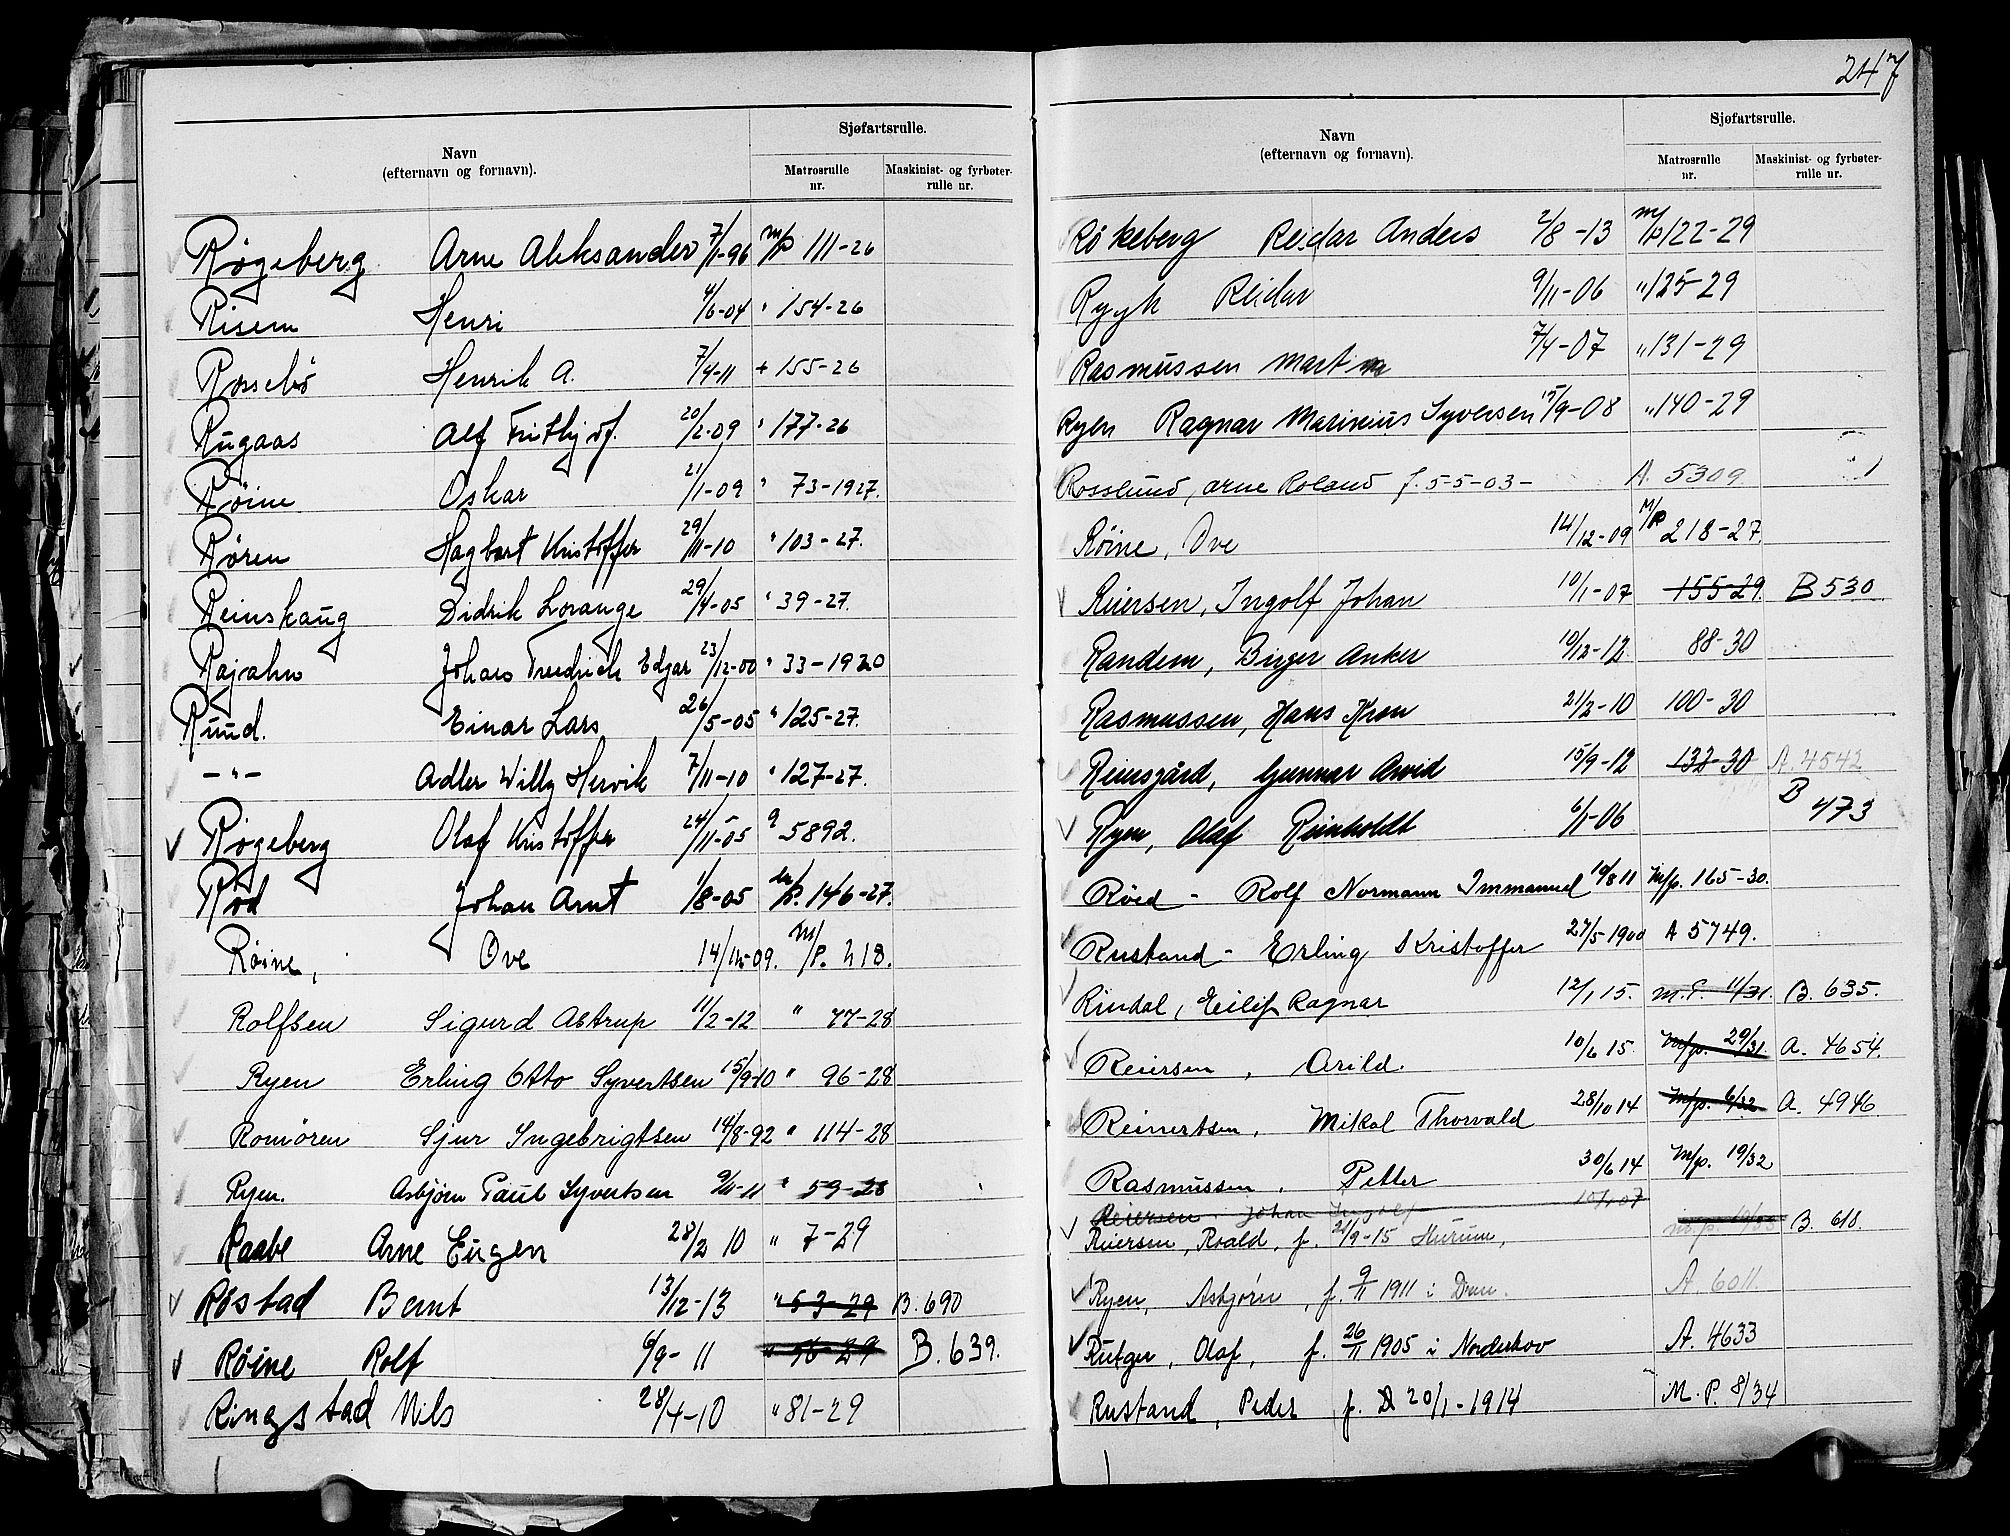 Navn
(efternavn og fornavn).
Sjøfartsrulle.
Matrosrulle
nr.
Maskinist- og fyrbøter-
rulle nr.
Røgeberg Arne Aleksander 7/1-96 m/p 111-26
Risem Henri 4/6-04 " 154-26
Rossebø Henrik A. 7/4-11 + 155-26
Rugaas Alf Frithjof. 20/2-09 " 177-26
Røine Oskar 21/1-09 " 73-1927.
Røren Hagbart Kristoffer 29/11-10 " 103-27.
Reinskaug Didrik Lorange 29/4-05 " 39-27.
Rajahn Johars Fredrich Edgar 23/12-00 " 33-1920
Ruud. Einar Lars 26/5-05 " 125-27.
-"- Adler Willy Hervik 7/11-10 " 127-27.
Røgeberg Olaf Kristoffer 24/11-05 9 5892.
Rød Johan Arnt 1/8-05 m/p. 146-27.
Røine, Ove 14/12-09. m/p. 218.
Rolfsen Sigurd Astrup 11/2-12 " 77-28
Ryen Erling Otto Syvertsen 15/9-10 " 96-28
Romören Sjur Ingebrigtsen 14/8-92 " 114-28
Ryen. Asbjørn Paul Syvertsen 9/11-11 " 59-28
Raabe Arne Eugen 28/2 10 " 7-29
Røstad Bernt 13/12-13 " 53-29 B. 690
Røine Rolf 6/9-11 " 56-29 B. 639.
Ringstad Nils 28/4-10 " 81-29
247
Navn
(efternavn og fornavn).
Sjøfartsrulle.
Matrosrulle
nr.
Maskinist- og fyrbøter-
rulle nr.
Rökeberg Reidar Anders 2/8-13 m/p 122-29
Rygh Reidar 9/11-06 " 125-29
Rasmussen Martin 7/4-07 " 131-29
Ryen Ragnar Marinius Syversen 15/9-08 " 140-29
Rosslund, Arne Roland f. 5-5-03- A. 5309
Röine, Ove 14/12-09 M/P 218-27.
Reiersen, Ingolf Johan 10/1-07 155-29 B 530
Randem, Birger Anker 10/12-12 88-30
Rasmussen, Hans Kron 21/2-10 100-30
Reinsgård, Gunnar Arvid 15/9-12 132-30 A. 4542
Ryen, Olaf Reinholdt 6/1-06 B 473
Röed - Rolf Normann Immanuel 10/8 11 M/p. 165-30.
Rustand - Erling Kristoffer 27/5-1900 A 5749.
Rindal, Eilif Ragnar 12/1 15. M.P. 11/31. B. 635.
Reiersen, Arild. 10/6 15. M/p. 29/31. A. 4654.
Reinertsen, Mikal Thorvald 28/10 14 M/p. 6/32 A. 4946
Rasmussen, Petter 30/6 14 M/p. 19/32
Reiersen, Johan Ingolf 10/1 07
Reiersen, Roald, f. 21/9-15 Hurum, B. 618.
Ryen, Asbjørn, f. 9/11 1911 i Drm. A. 6011.
Rütger, Olaf, f. 26/11 1905 i Norderhov A. 4633
Rustand, Peder f. 20/1-1914 M.P. 8/34